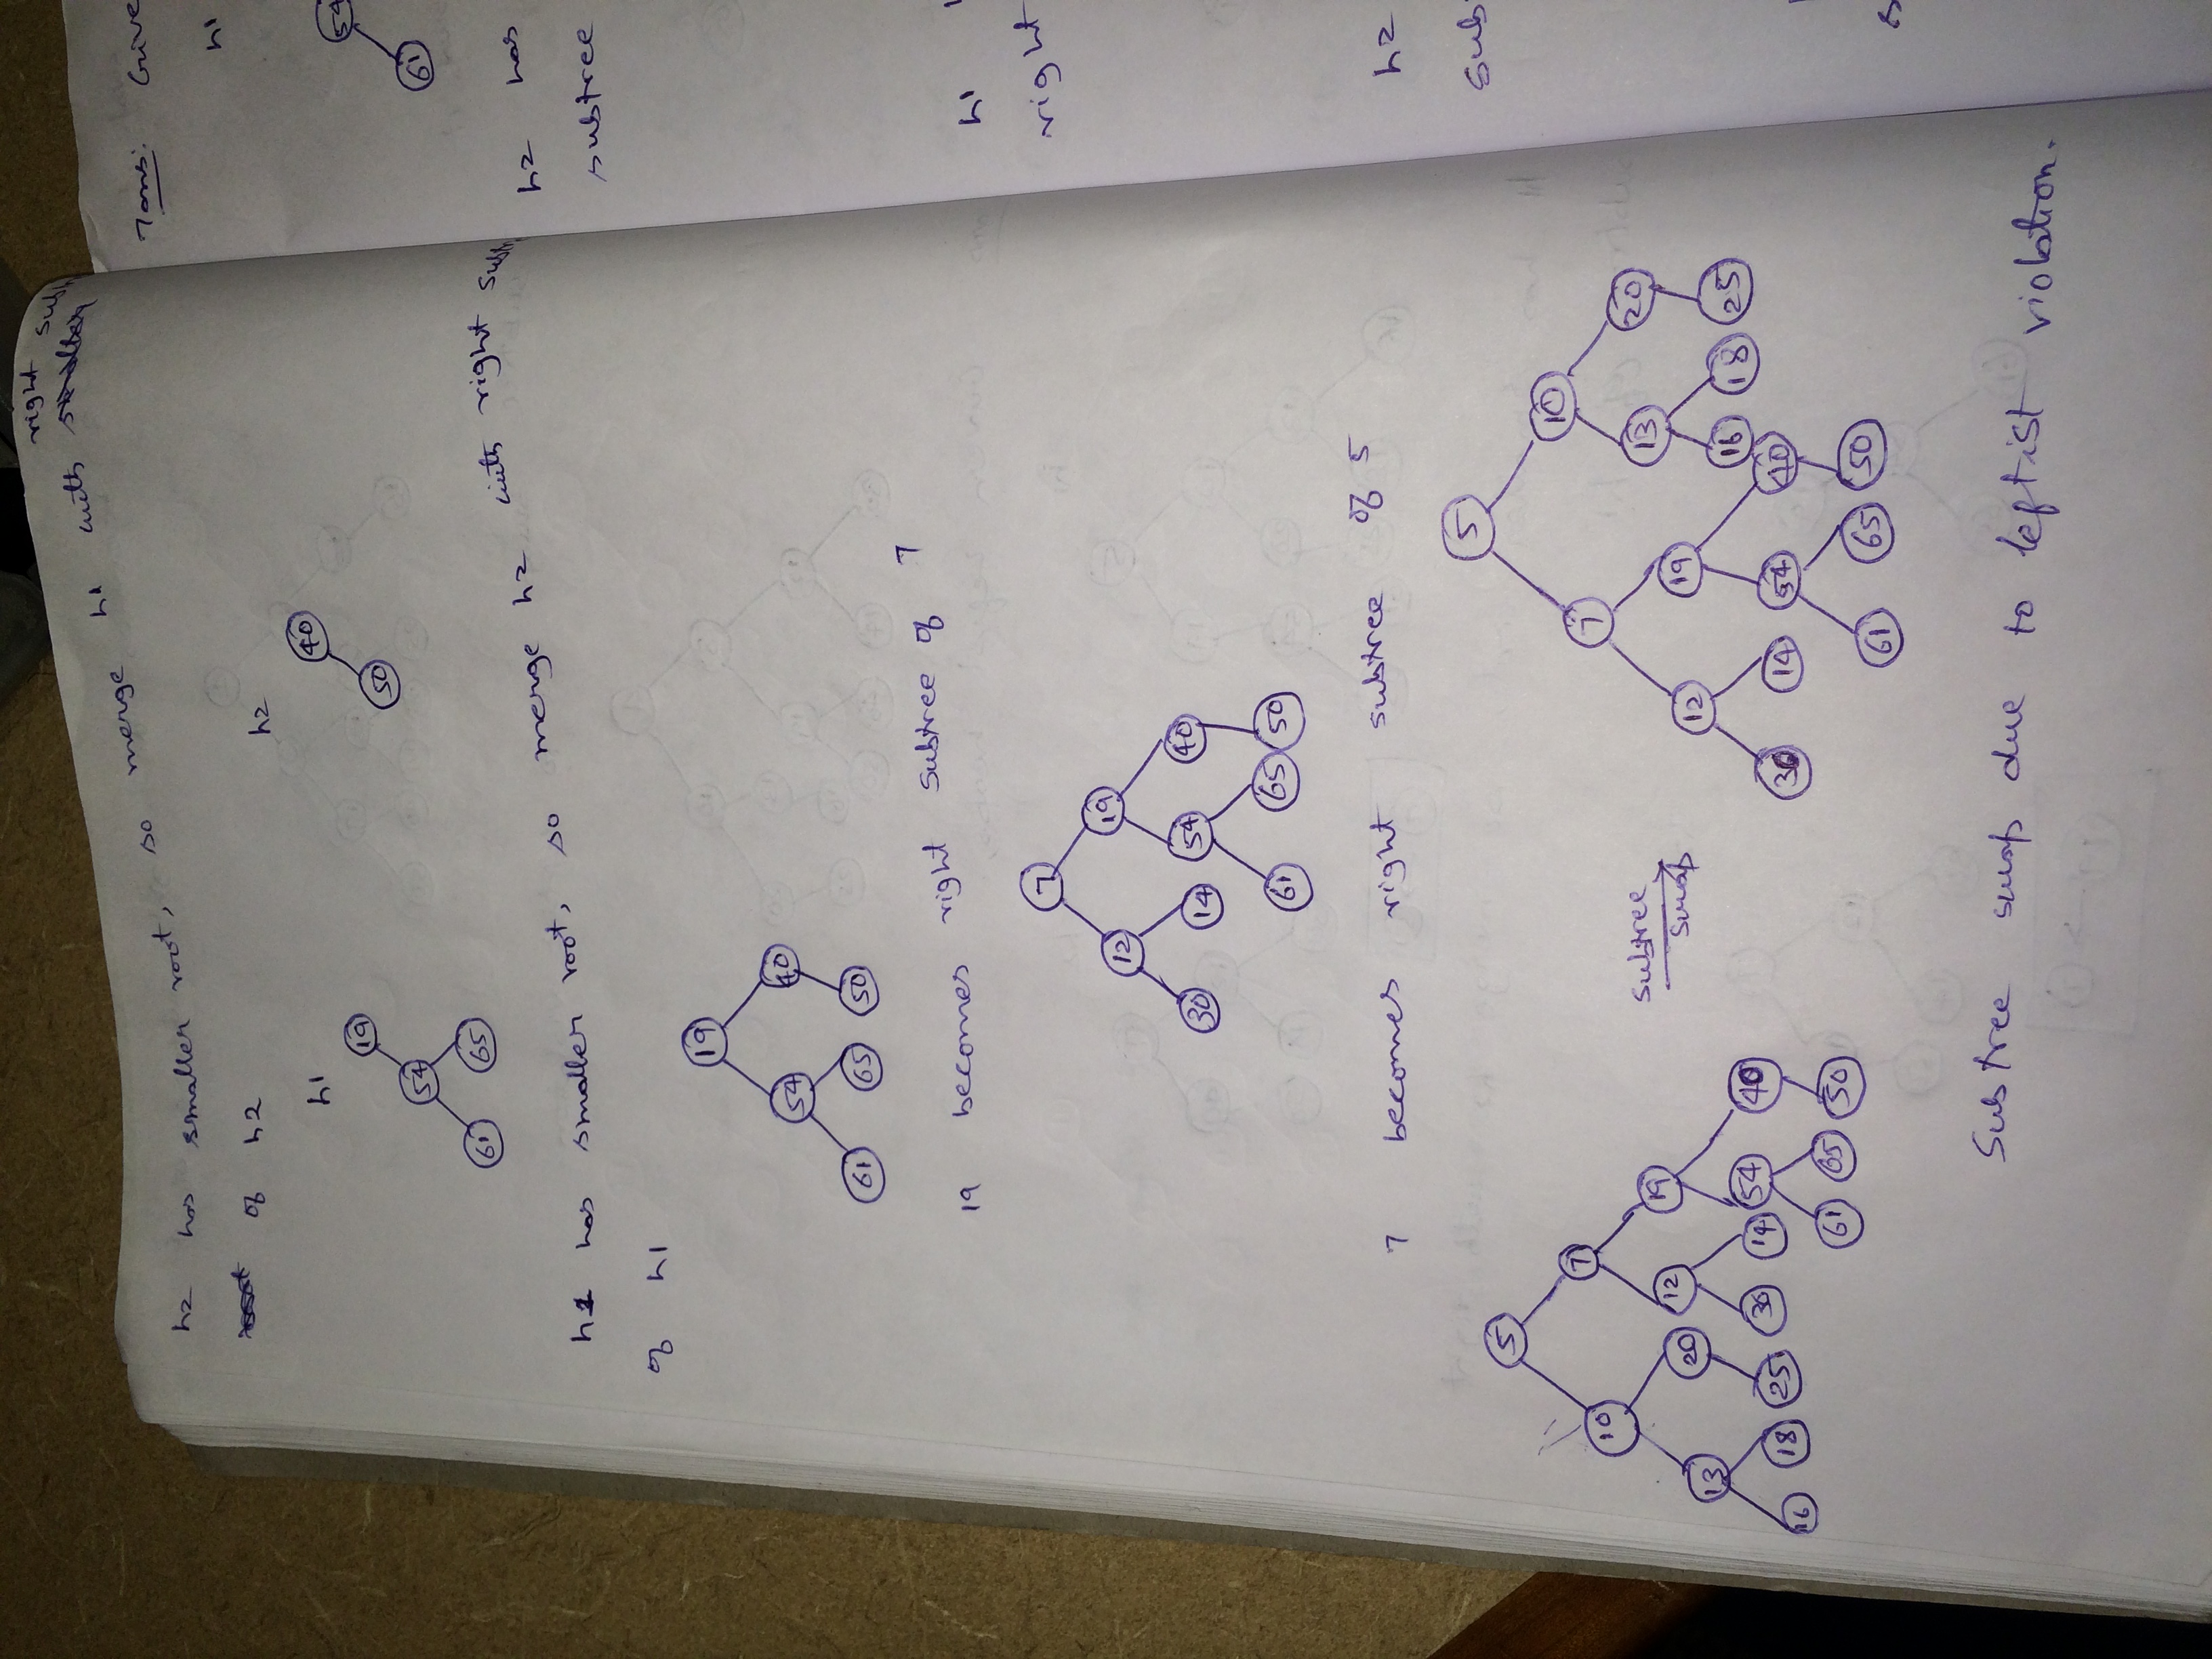 right
h2 has smaller root, so merge h1 with
of h2
h1 h2
19 40
54 50
61 65
h1 has smaller root, so merge h2 with right
of h1
19
54 40
61 65 50
19 becomes right subtree of 7
7
12 19
30 14 54 40
61 65 50
7 becomes right subtree of 5
5
10 7
13 20 12 19
16 18 25 30 14 54 40
61 65 50
subtree
swap
5
7 10
12 19 13 20
30 14 54 40 16 18 25
61 65 50
Subtree swap due to leftist violation.
7 ans: Give
h1
54
61
h2 has
subtree
h1
right
h2
sub